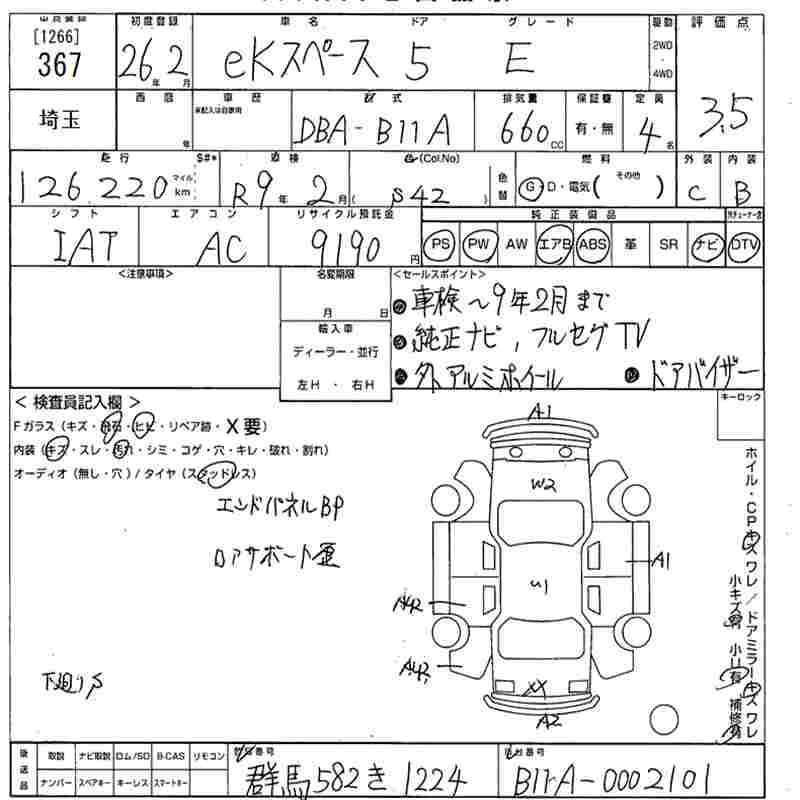 [1266]
367
初度登録 車名 ドア グレード 駆動 評価点
26年 2月 eKスペース 5 E 2WD・4WD
3.5
埼玉
西暦 車歴 型式 排気量 保証書 定員
年 未記入は自家用 DBA-B11A 660cc 有・無 4名
走行 S#* 車検 色(Col.No) 燃料 外装 内装
126220 マイル km R9年 2月 ( S42 ) 色替 G・D・電気( その他 ) C B
シフト エアコン リサイクル預託金 純正装備品
IAT AC 9190円 PS PW AW エアB ABS 革 SR ナビ DTV
<注意事項> 名変期限 <セールスポイント>
月 日
車検〜9年2月まで
輸入車
純正ナビ, フルセグTV
ディーラー・並行
外アルミホイール ドアバイザー
左H ・ 右H
< 検査員記入欄 > キーロック
Fガラス(キズ・飛石・ヒビ・リペア跡・X要)
内装(キズ・スレ・汚れ・シミ・コゲ・穴・キレ・破れ・割れ)
オーディオ(無し・穴)/タイヤ(スタッドレス)
エンドパネルBP
下廻りS
A1
W2
U1
A1
XX
A2
ホイル・CPキズワレ/ドアミラーキズワレ
小キズ有 小U有 補修有
後送品 取説 ナビ取説 ロム/SD B-CAS リモコン
ナンバー スペアキー キーレス スマートキー
登録番号 車台番号
群馬582き1224 B11A-0002101